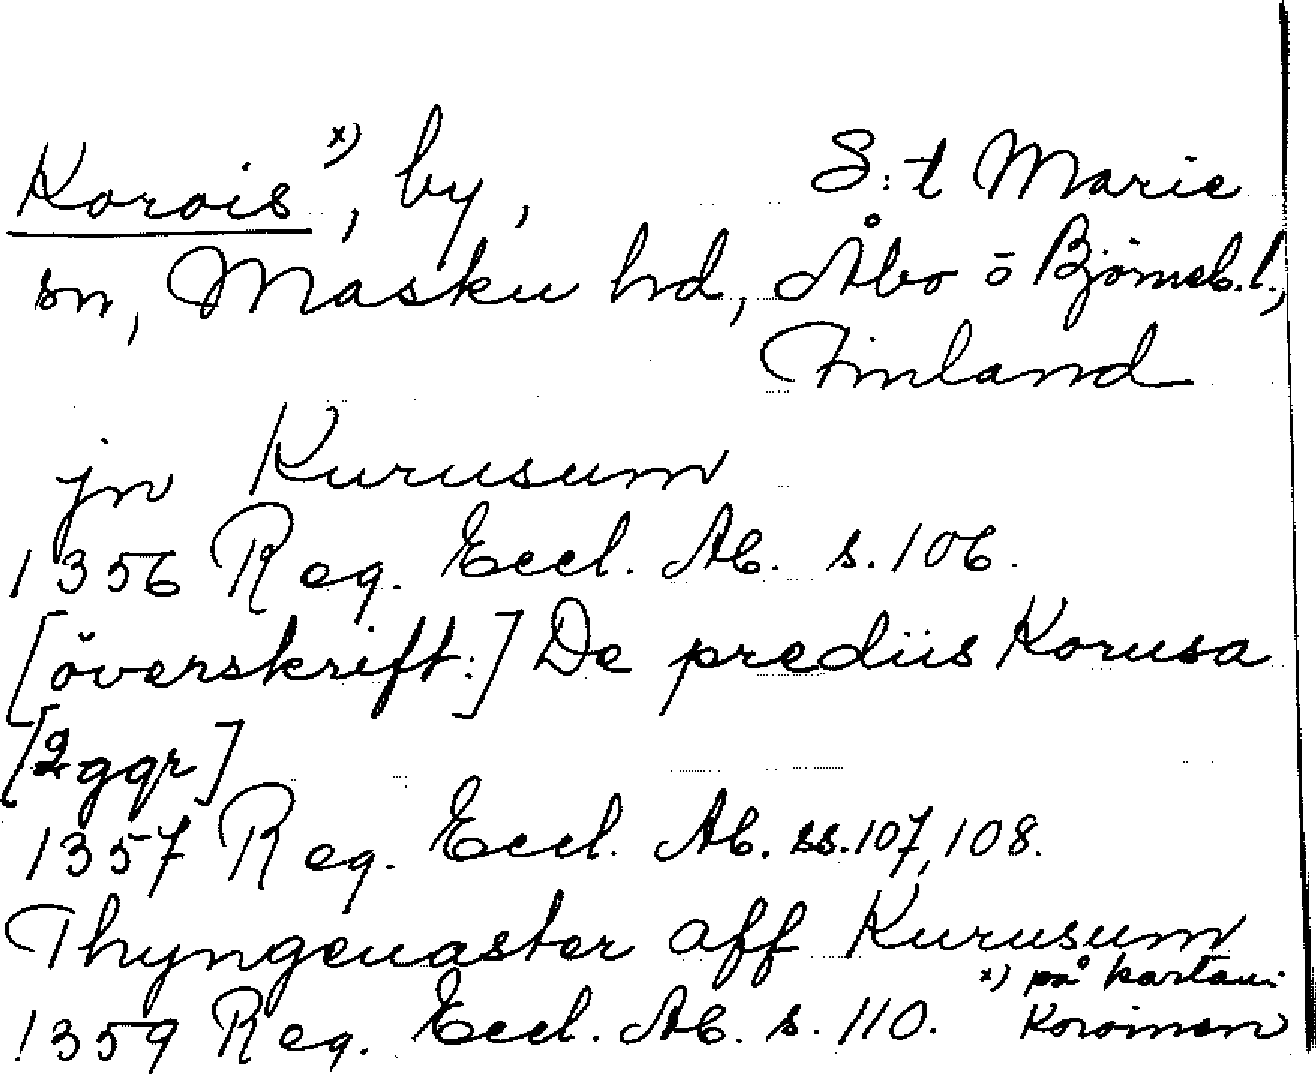 Korois x), by, S:t Marie
sn, Masku hd, Åbo o Björneb.l.,
Finland
jn Kurusum
1356 Reg. Eccl. Ab. s. 106.
[överskrift:] De prediis Korusa
[2 ggr]
1357 Reg. Eccl. Ab. ss. 107, 108.
Thyngeuaster aff Kurusum
1359 Reg. Eccl. Ab. s. 110.
x) på kartan:
Koroinen